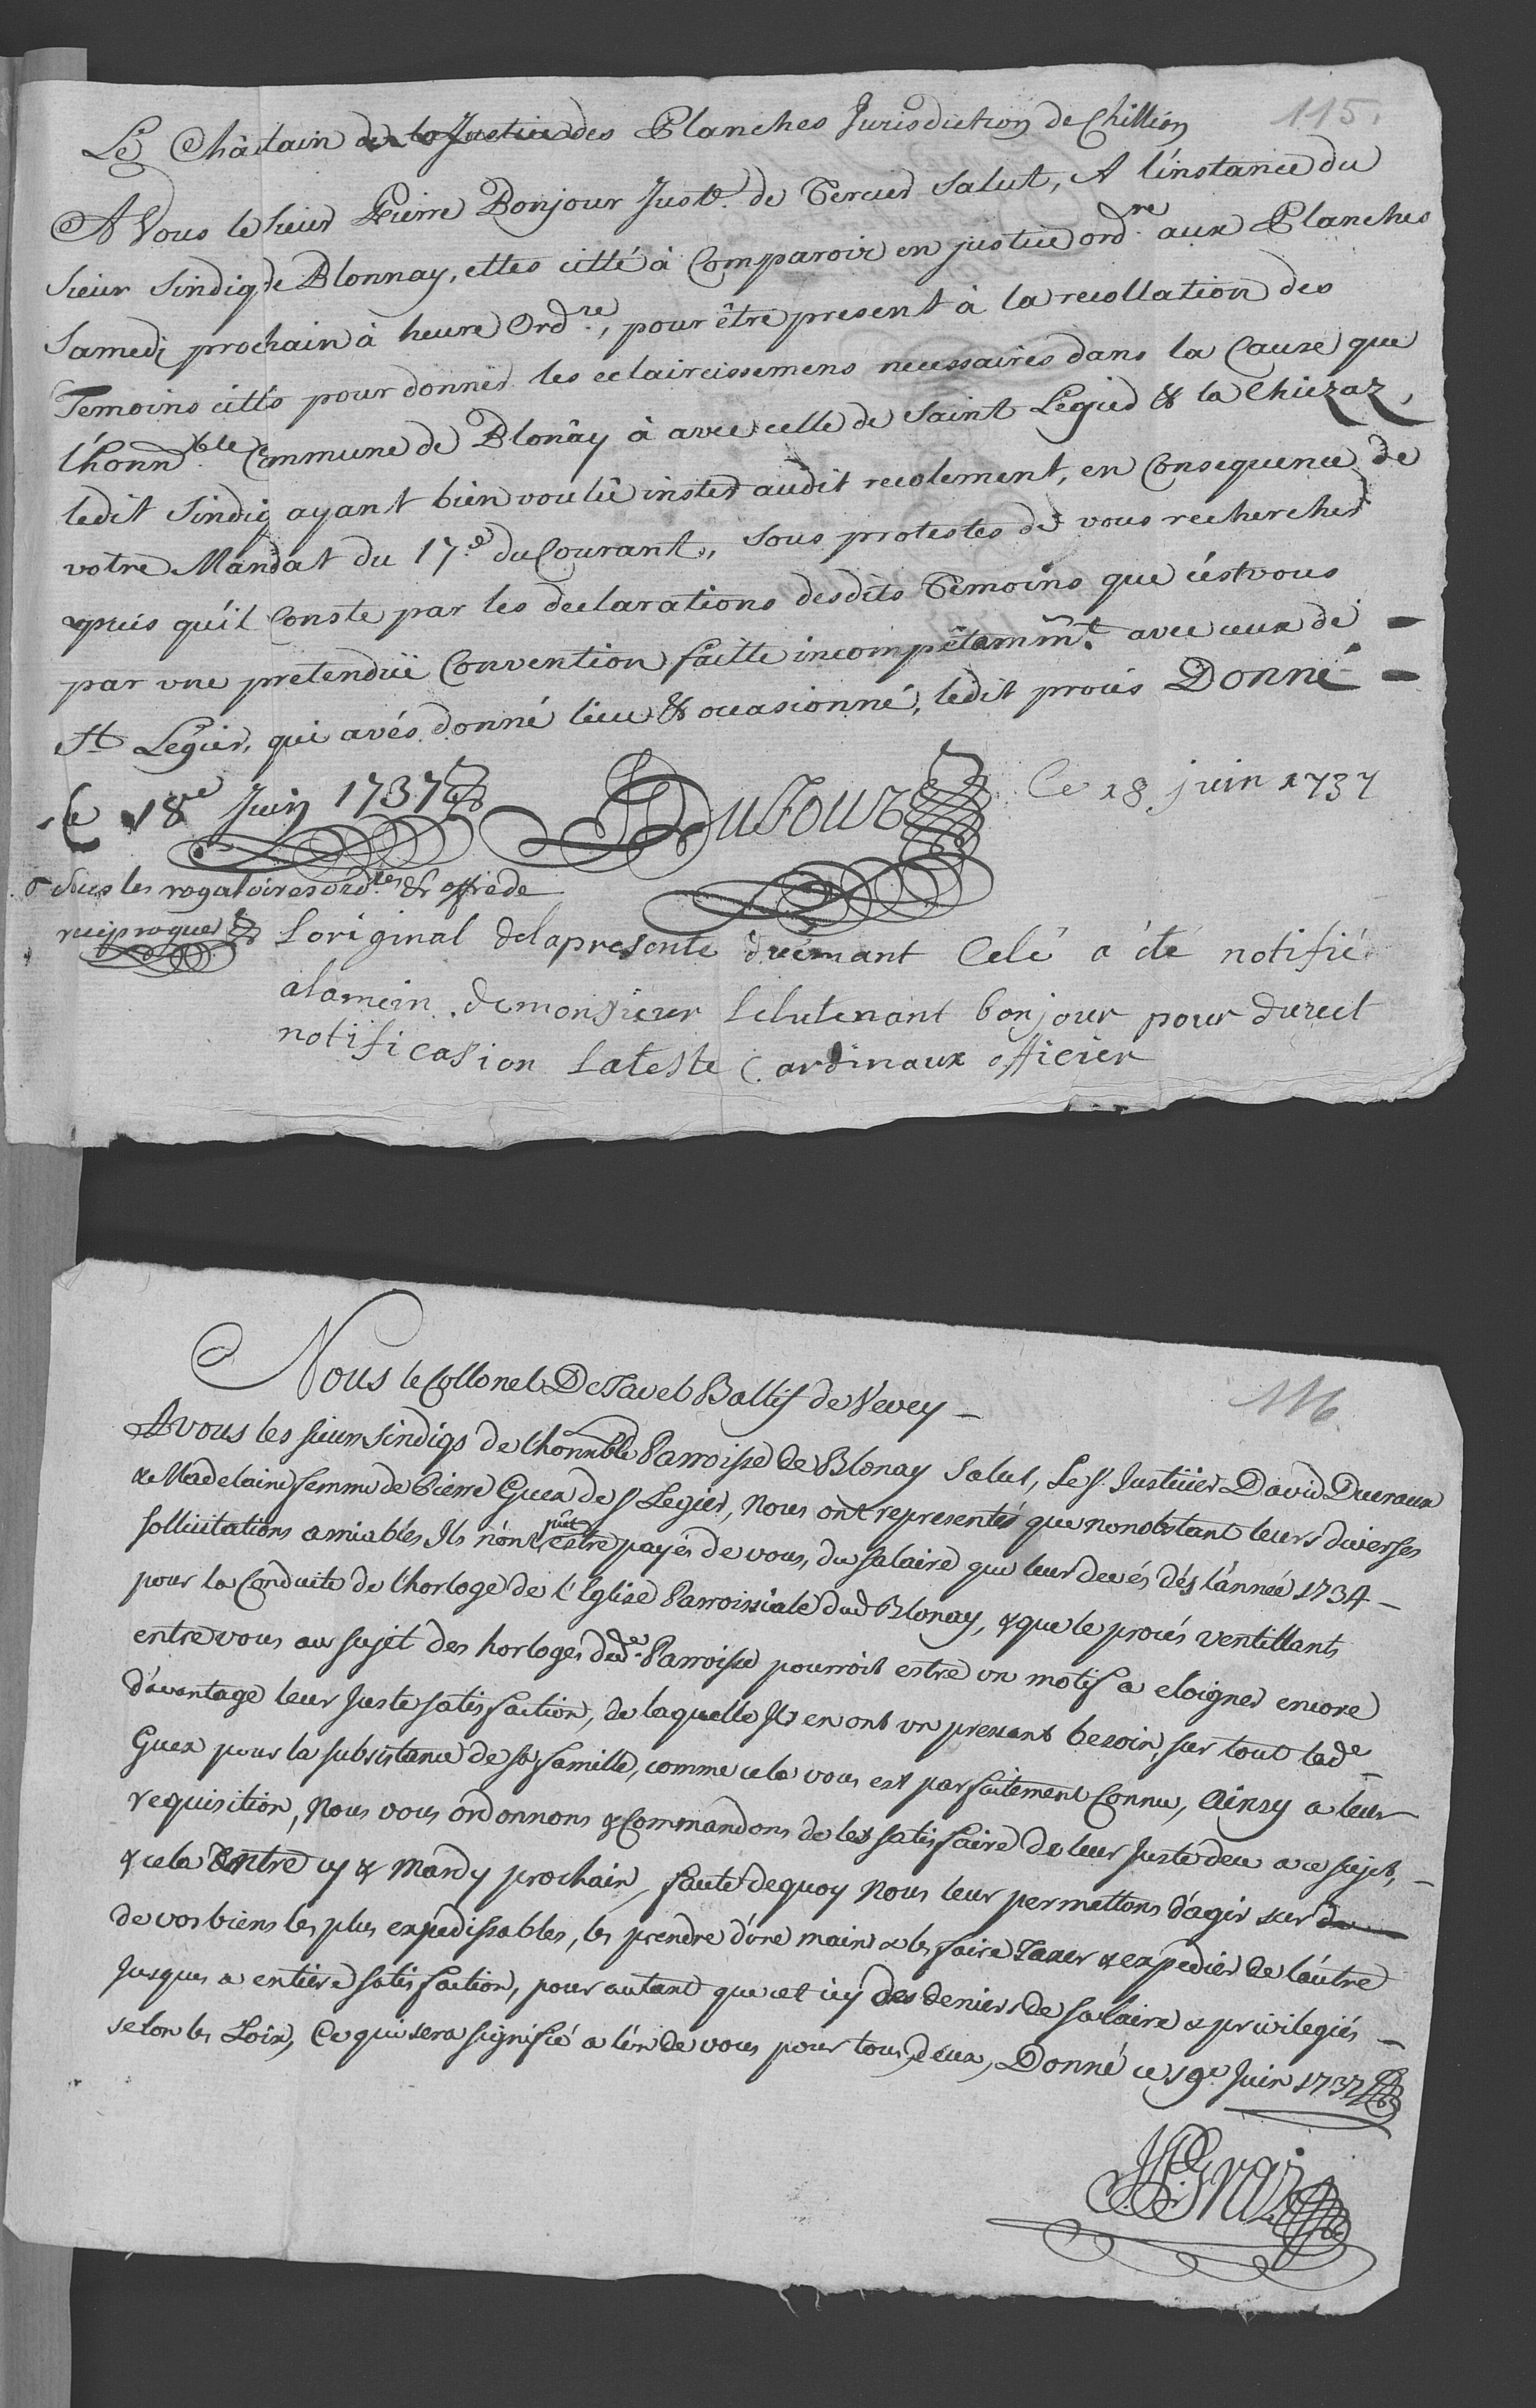 115.
Le Châtain de la Justice des Planches Jurisdiction de Chillion
A Vous le sieur Pierre Bonjour Just.r de Tercier Salut, A l'instance du
Sieur Sindiq de Blonnay, ettes citté à Comparoir en justice ord.re aux Planches
Samedi prochain à heure Ord.re, pour être present à la recollation des
Temoins cittés pour donner les eclaircissemens necessaires dans la Cause que
l'honn.ble Commune de Blonäy à avec celle de Saint Legier & la Chiezaz,
ledit Sindiq ayant bien voulû inster audit recolement, en Consequence de
votre Mandat du 17.e du Courant, sous protestes de vous rechercher
apres qu'il Conste par les declarations desdits Temoins que c'est vous
par vne pretenduë Convention faitte incompêtamm.t avec ceux de
St Legier, qui avés donné lieu & occasionné, ledit procés Donné
Ce 18.e Juin 1737
Dufour
Ce 18 juin 1737
Sous les rogatoires ord.res & offre de
reciproque
L'original de la presente ... Celé a été notifié
alamein de monsieur Lelutenant bonjour pour durect
notificasion Lateste Cardinaux officier
116
Nous le Collonel De Tavel Ballif de Vevey
A vous les sieurs Sindiqs de l'honnble Parroisse de Blonay Salut, Le Sr. Justicier David Ducraux
& Madelaine femme de Pierre Guex de St Legier, Nous ont representés que nonobstant leurs diverses
sollicitations amiables Ils n'ont pût estre payés de vous, du salaire que leur devés dés l'année 1734
pour la Conduite de l'horloge de l'Eglise Parroissiale dud Blonay, & que le procés ventillants
entre vous au sujet des horloges dud.e Parroisse pourroit estre vn motif a eloigner encore
d'avantage leur Juste satisfaction, de laquelle Ils en ont vn pressant besoin, sur tout lad.e
Guex pour la subsistance de sa famille, comme cela vous est parfaitement Connu, Ainsy a leur
requisition, Nous vous ordonnons & Commandons de les satisfaire de leur Juste deu a ce sujet,
& cela Entre cy & Mardy prochain, faute dequoy Nous leur permettons d'agir sur
de vos biens les plus expedissables, les prendre d'vne main & les faire Taxer & expedier de l'autre
Jusques a entiere satisfaction, pour autant que cet icy des deniers de salaire & privilegiés
selon les Loix, Ce qui sera signifié a l'vn de vous pour tous deux, Donné ce 19e Juin 1737
Graz